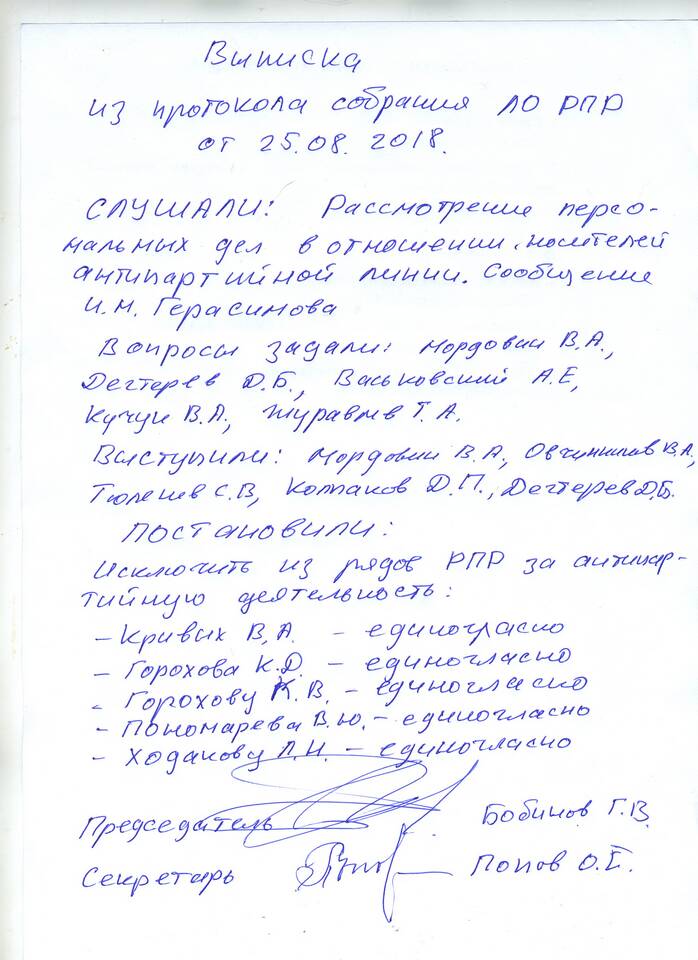 Выписка
из протокола собрания ЛО РПР
от 25.08.2018.
СЛУШАЛИ: Рассмотрение персо-
нальных дел в отношении носителей
антипартийной линии. Сообщение
И.М. Герасимова
Вопросы задали: Мордовин В.А.,
Дегтерев Д.Б., Васьковский А.Е,
Кучун В.А., Журавлев Т.А.
Выступили: Мордовин В.А., Овчинников В.А.,
Тюленев С.В, Колпаков Д.П., Дегтерев Д.Б.
ПОСТАНОВИЛИ:
Исключить из рядов РПР за антипар-
тийную деятельность:
- Кривых В.А. - единогласно
- Горохова К.Д. - единогласно
- Горохову К.В. - единогласно
- Пономарева В.Ю. - единогласно
- Ходакову Л.Н. - единогласно
Председатель Бобинов Г.В.
Секретарь Попов О.Е.